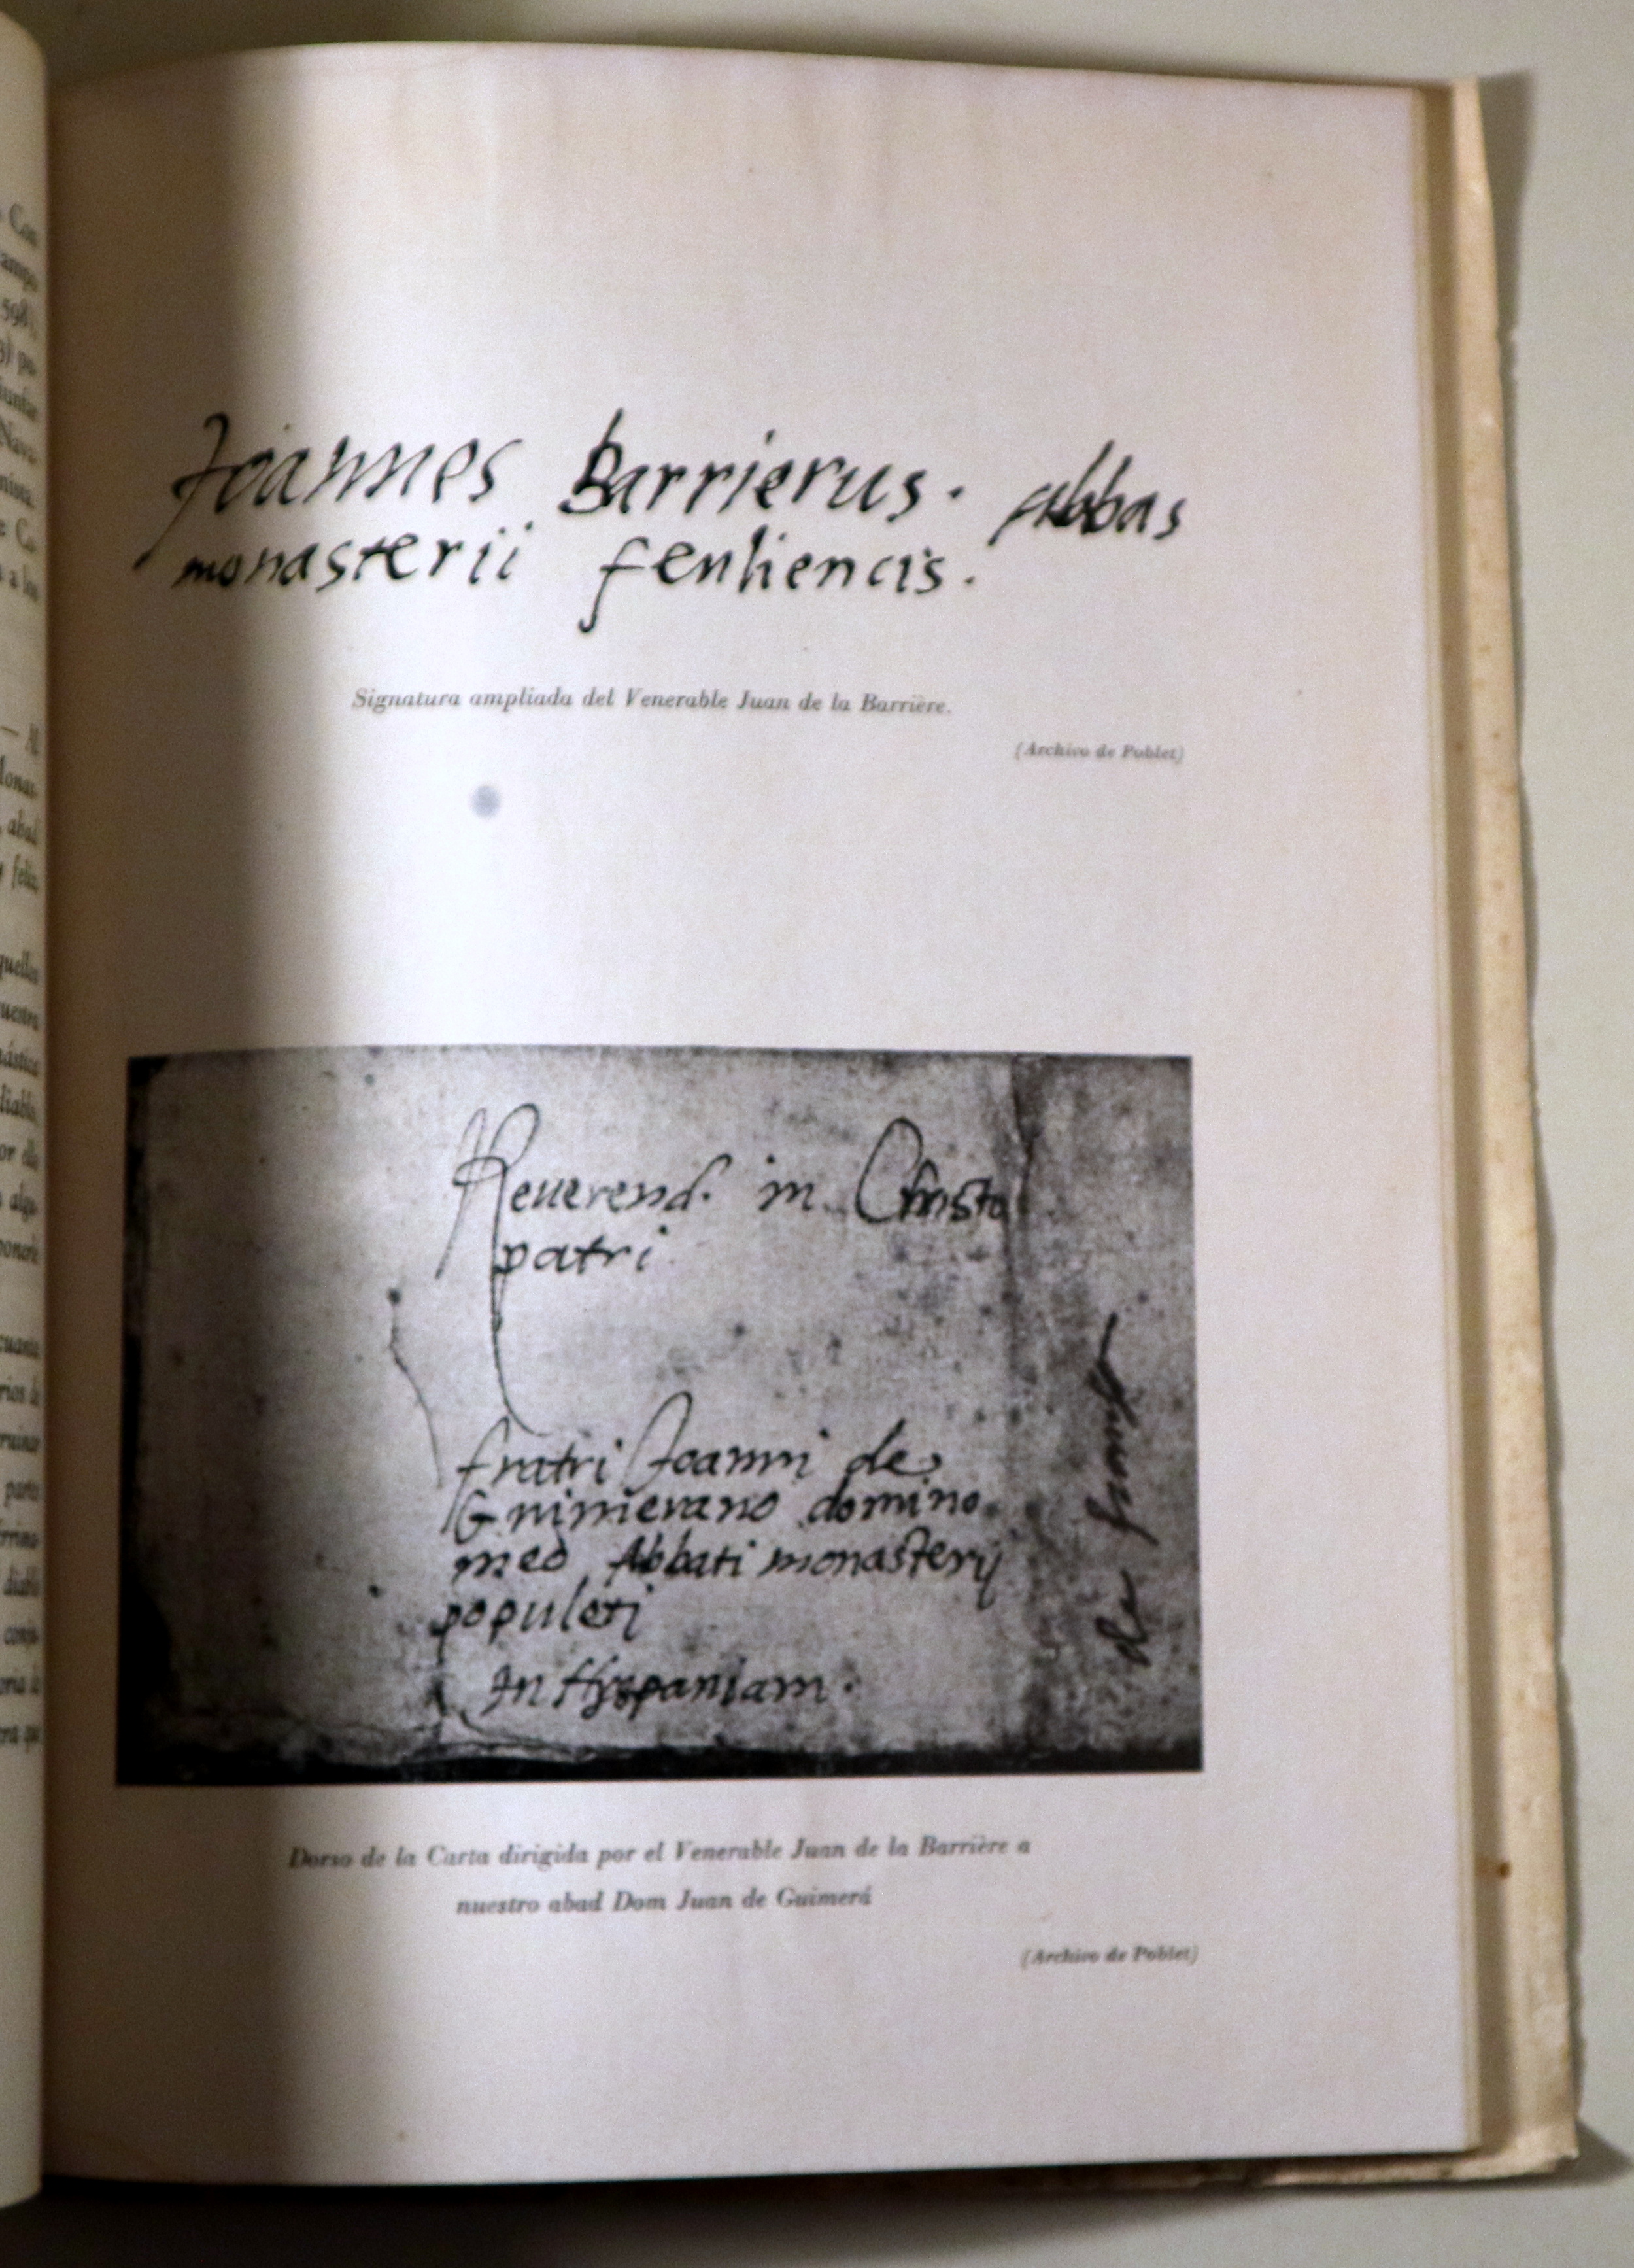 Con
598),
Joannes Barrierus. abbas
monasterii fenliencis.
Signatura ampliada del Venerable Juan de la Barrière.
(Archivo de Poblet)
Reuerend. in Christo
patri
fratri Joanni de
Guimerano domino
meo Abbati monasterij
populeti
In Hyspaniam.
de
Dorso de la Carta dirigida por el Venerable Juan de la Barrière a
nuestro abad Dom Juan de Guimerá
(Archivo de Poblet)